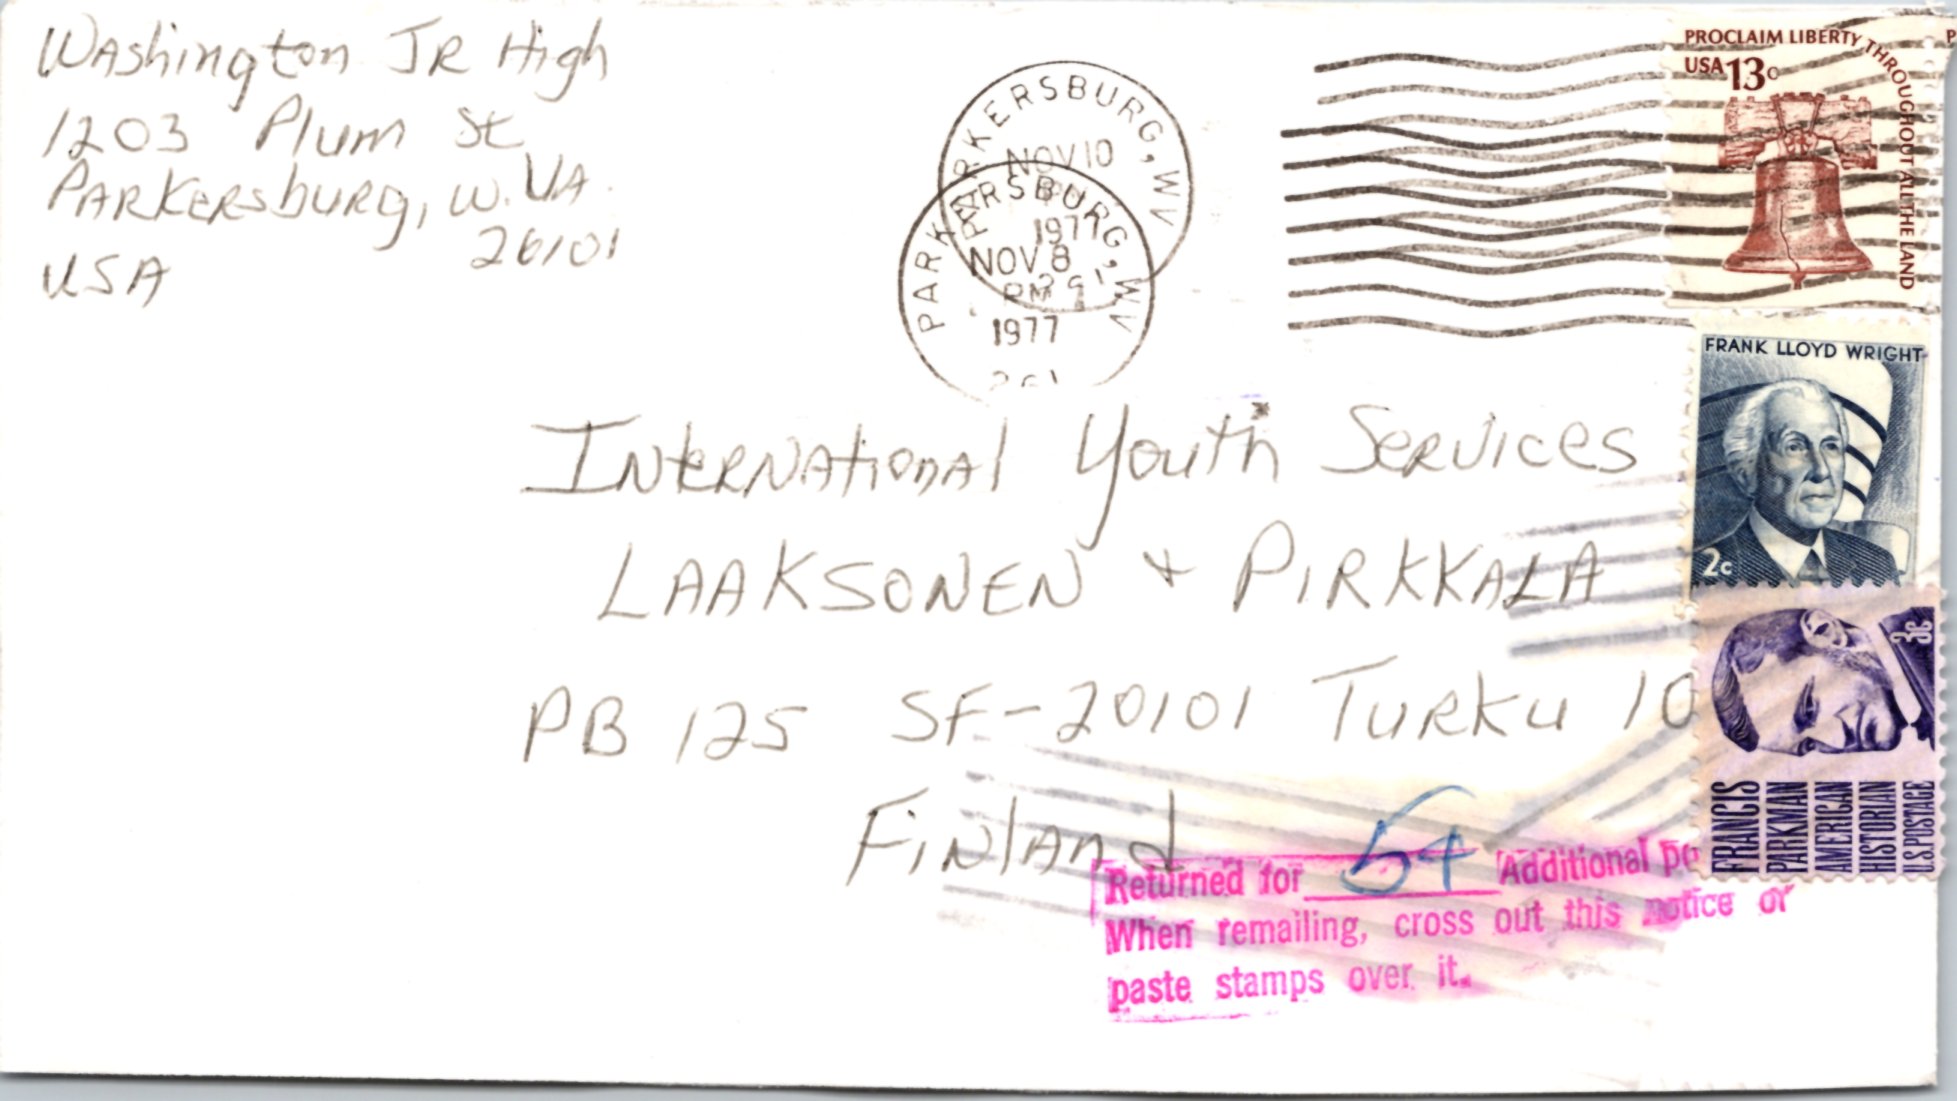 WAshington JR High
1203 Plum St
PARKERSbURg, W.VA.
26101
USA
PARKERSBURG, WV
NOV 10
1977
261
PARKERSBURG, WV
NOV 8
PM
1977
261
PROCLAIM LIBERTY THROUGHOUT ALL THE LAND
USA 13c
FRANK LLOYD WRIGHT
2c
3c
FRANCIS
PARKMAN
AMERICAN
HISTORIAN
U.S. POSTAGE
INtERNAtional Youth SeRvices
LAAKSONEN + PIRKKALA
PB 125 SF-20101 TURKU 10
FiNlANd
Returned for 5¢ Additional po
When remailing, cross out this notice or
paste stamps over it.